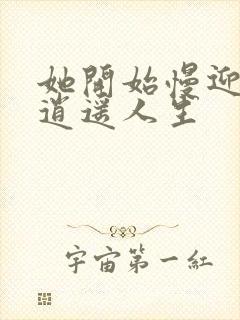 她開始慢迎
逍遥人生
宇宙第一紅